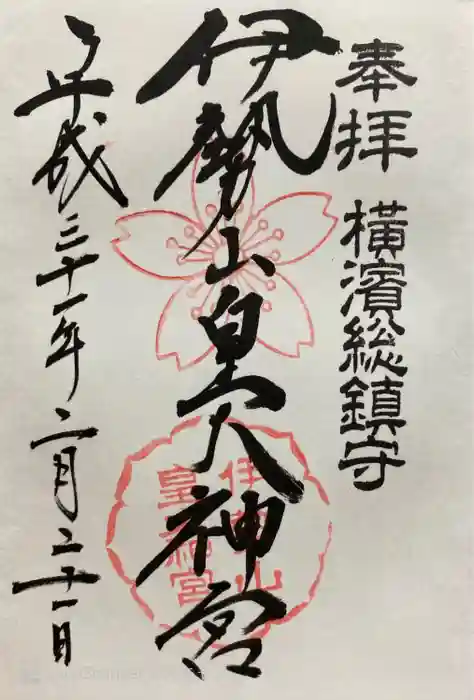 奉拝
横濱総鎮守
伊勢山皇大神宮
伊勢山
皇大神宮
平成三十一年二月二十一日